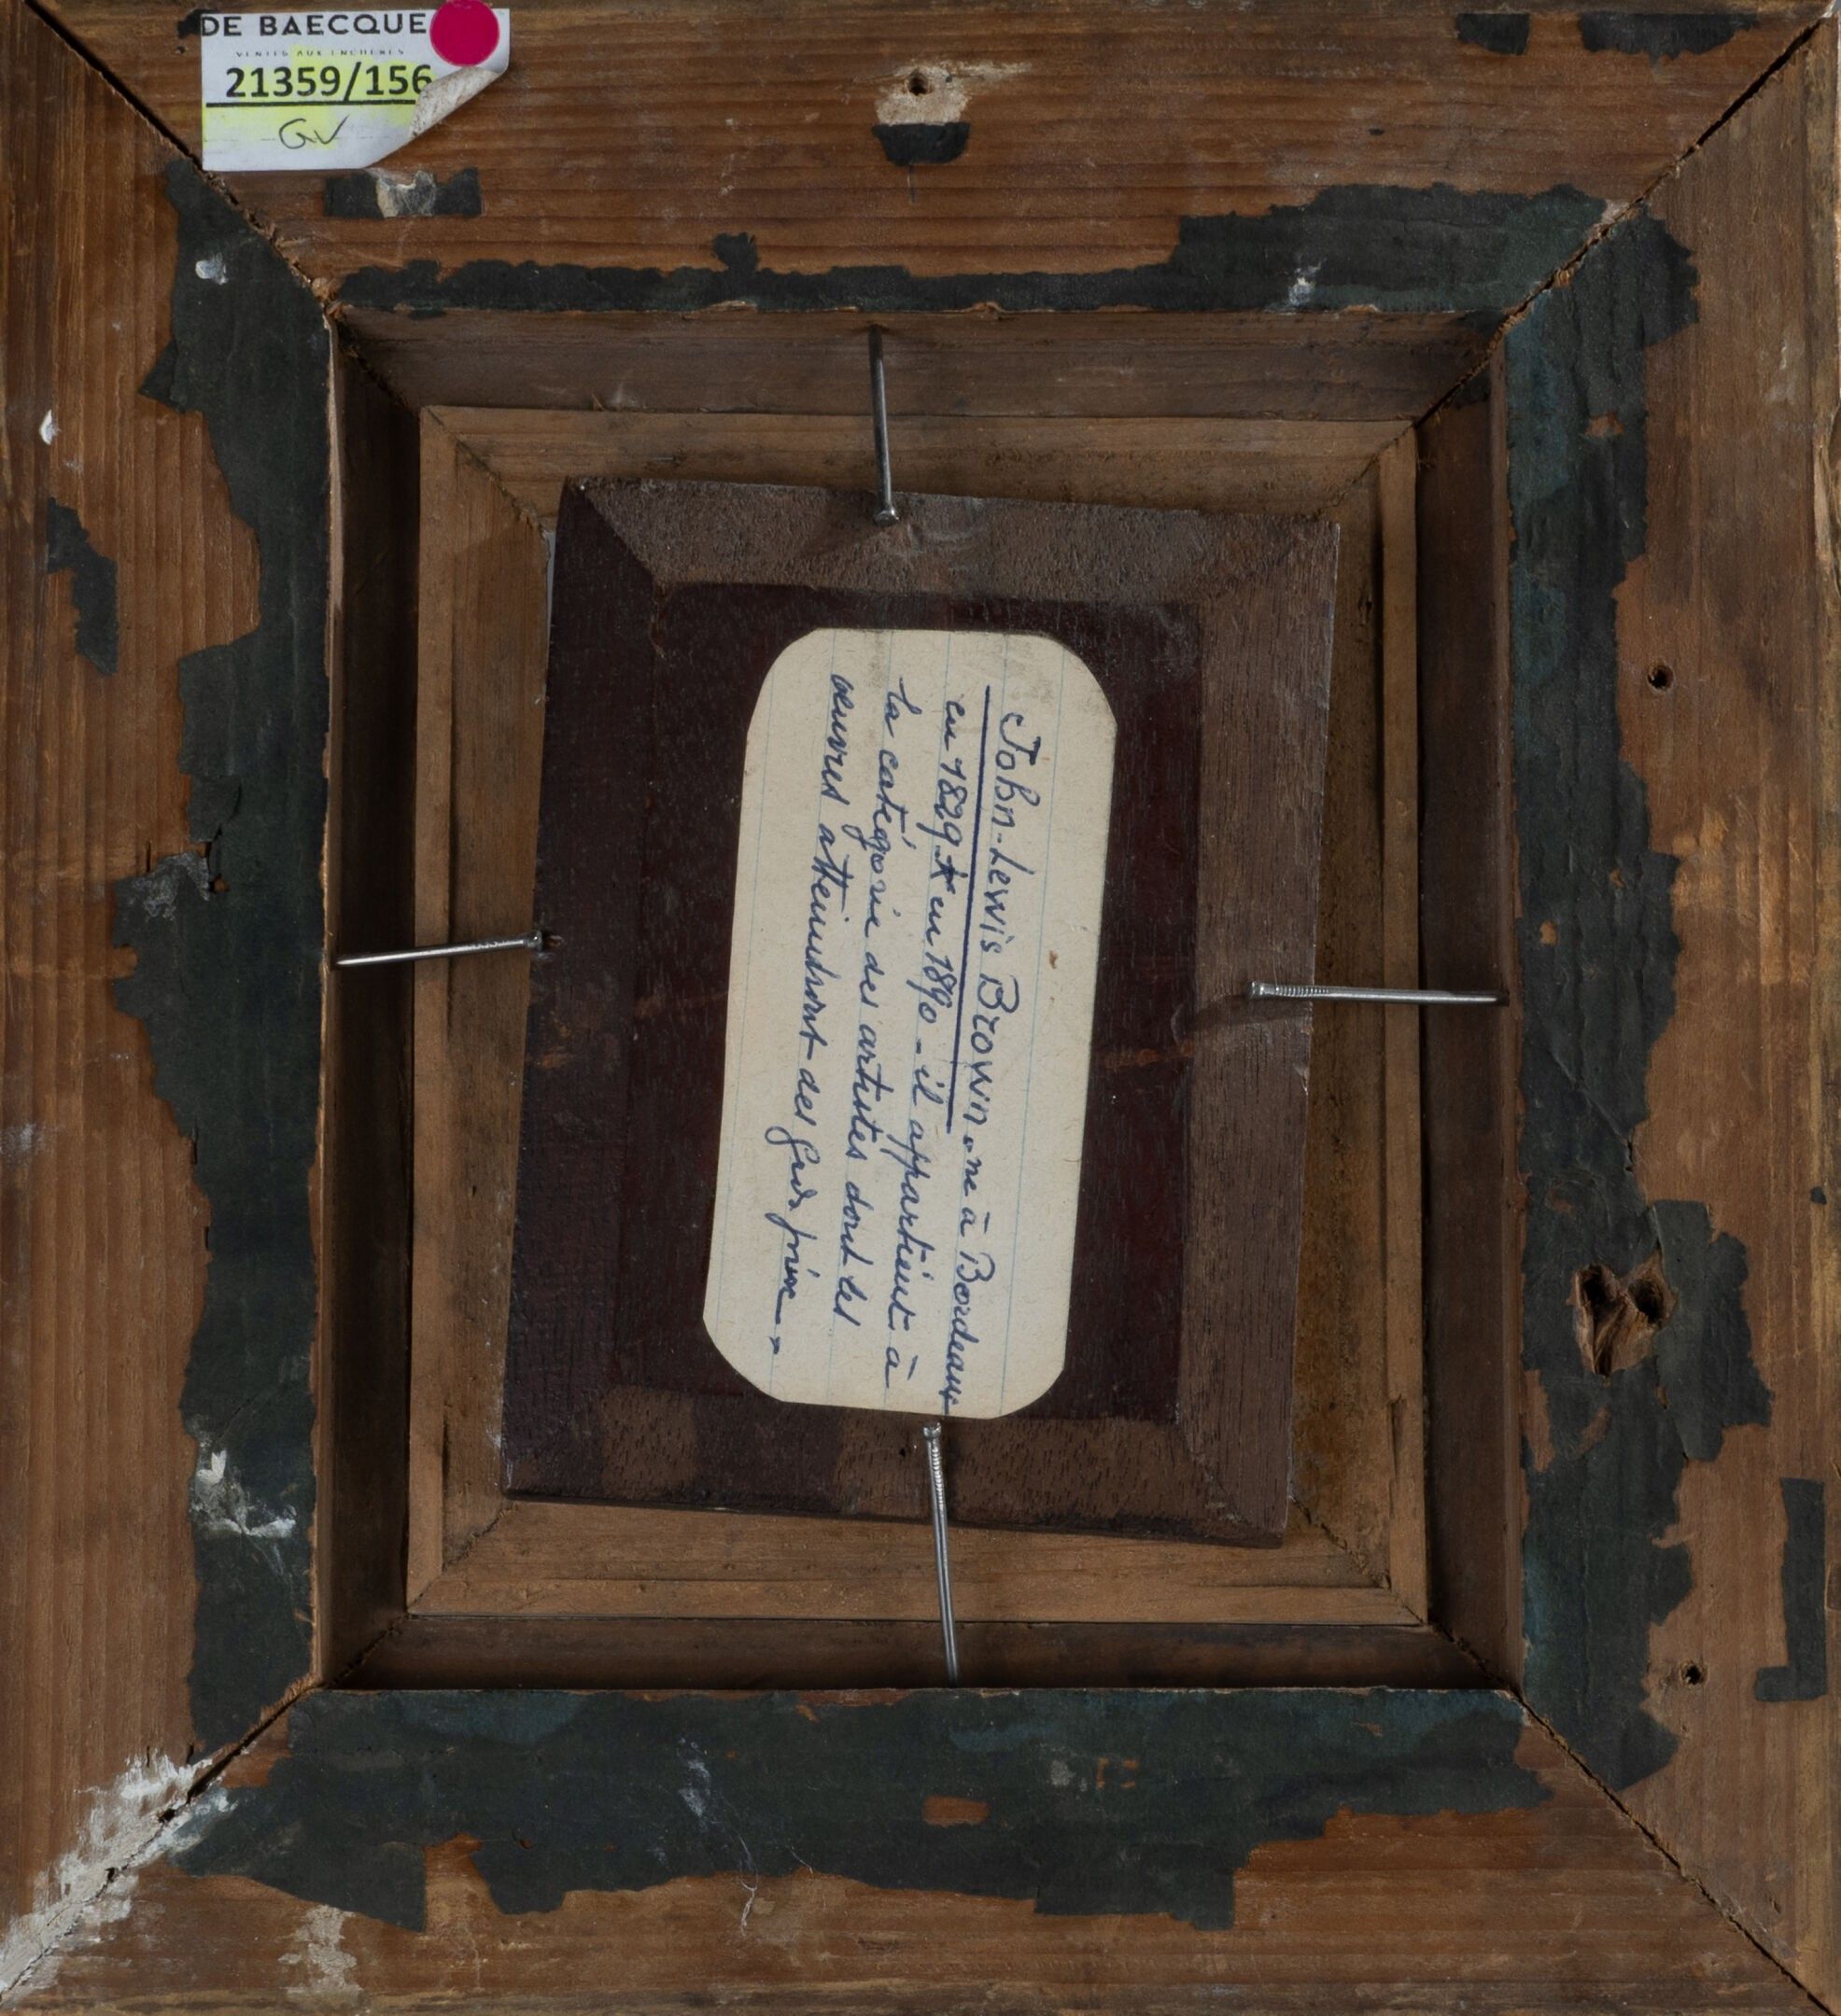 DE BAECQUE
VENTES AUX ENCHÈRES
21359/156
GV
John-Lewis Brown. né à Bordeaux
en 1829 + en 1890 - il appartient à
la catégorie des artistes dont les
œuvres atteindront des gds prix - "